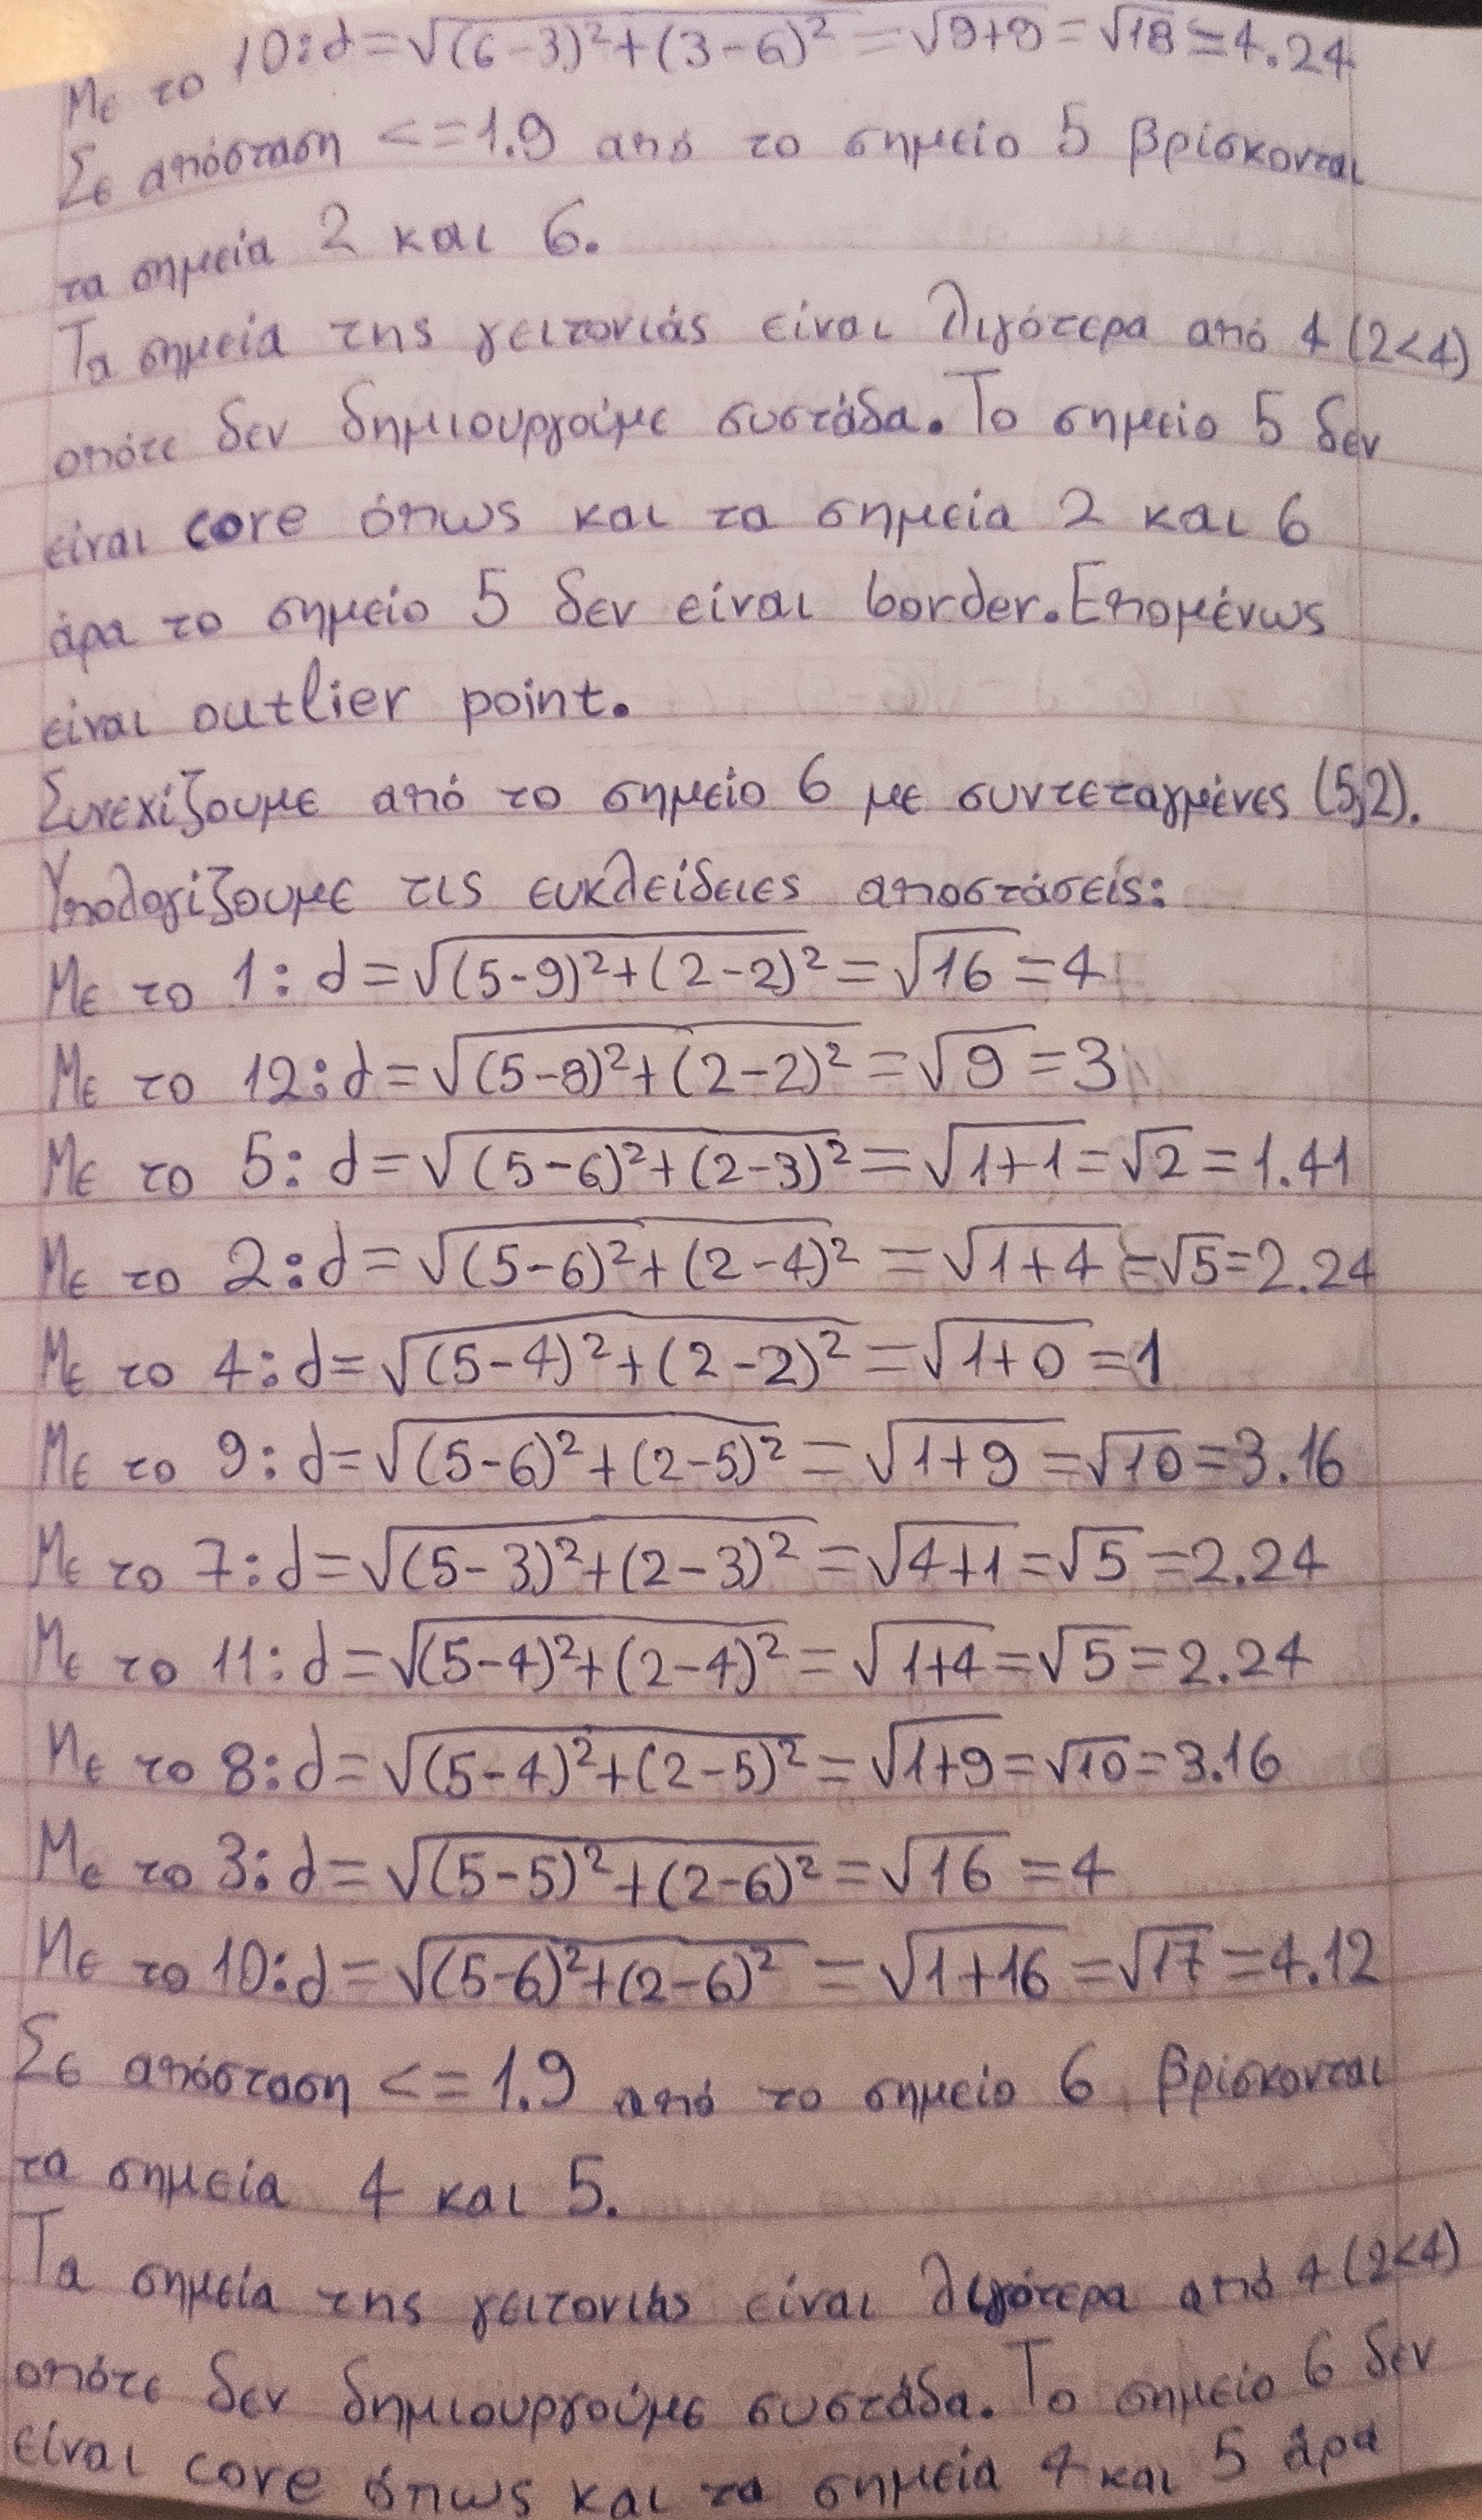 Με το 10: d = √(6-3)²+(3-6)² = √9+9 = √18 ≃ 4.24
Σε απόσταση <=1.9 από το σημείο 5 βρίσκονται
τα σημεία 2 και 6.
Τα σημεία της γειτονιάς είναι λιγότερα από 4 (2<4)
οπότε δεν δημιουργούμε συστάδα. Το σημείο 5 δεν
είναι core όπως και τα σημεία 2 και 6
άρα το σημείο 5 δεν είναι border. Επομένως
είναι outlier point.
Συνεχίζουμε από το σημείο 6 με συντεταγμένες (5,2).
Υπολογίζουμε τις ευκλείδειες αποστάσείς:
Με το 1: d = √(5-9)²+(2-2)² = √16 = 4
Με το 12: d = √(5-8)²+(2-2)² = √9 = 3
Με το 5: d = √(5-6)²+(2-3)² = √1+1 = √2 = 1.41
Με το 2: d = √(5-6)²+(2-4)² = √1+4 = √5 = 2.24
Με το 4: d = √(5-4)²+(2-2)² = √1+0 = 1
Με το 9: d = √(5-6)²+(2-5)² = √1+9 = √10 = 3.16
Με το 7: d = √(5-3)²+(2-3)² = √4+1 = √5 = 2.24
Με το 11: d = √(5-4)²+(2-4)² = √1+4 = √5 = 2.24
Με το 8: d = √(5-4)²+(2-5)² = √1+9 = √10 = 3.16
Με το 3: d = √(5-5)²+(2-6)² = √16 = 4
Με το 10: d = √(5-6)²+(2-6)² = √1+16 = √17 = 4.12
Σε απόσταση <=1.9 από το σημείο 6 βρίσκονται
τα σημεία 4 και 5.
Τα σημεία της γειτονιάς είναι λιγότερα από 4 (2<4)
οπότε δεν δημιουργούμε συστάδα. Το σημείο 6 δεν
είναι core όπως και τα σημεία 4 και 5 άρα